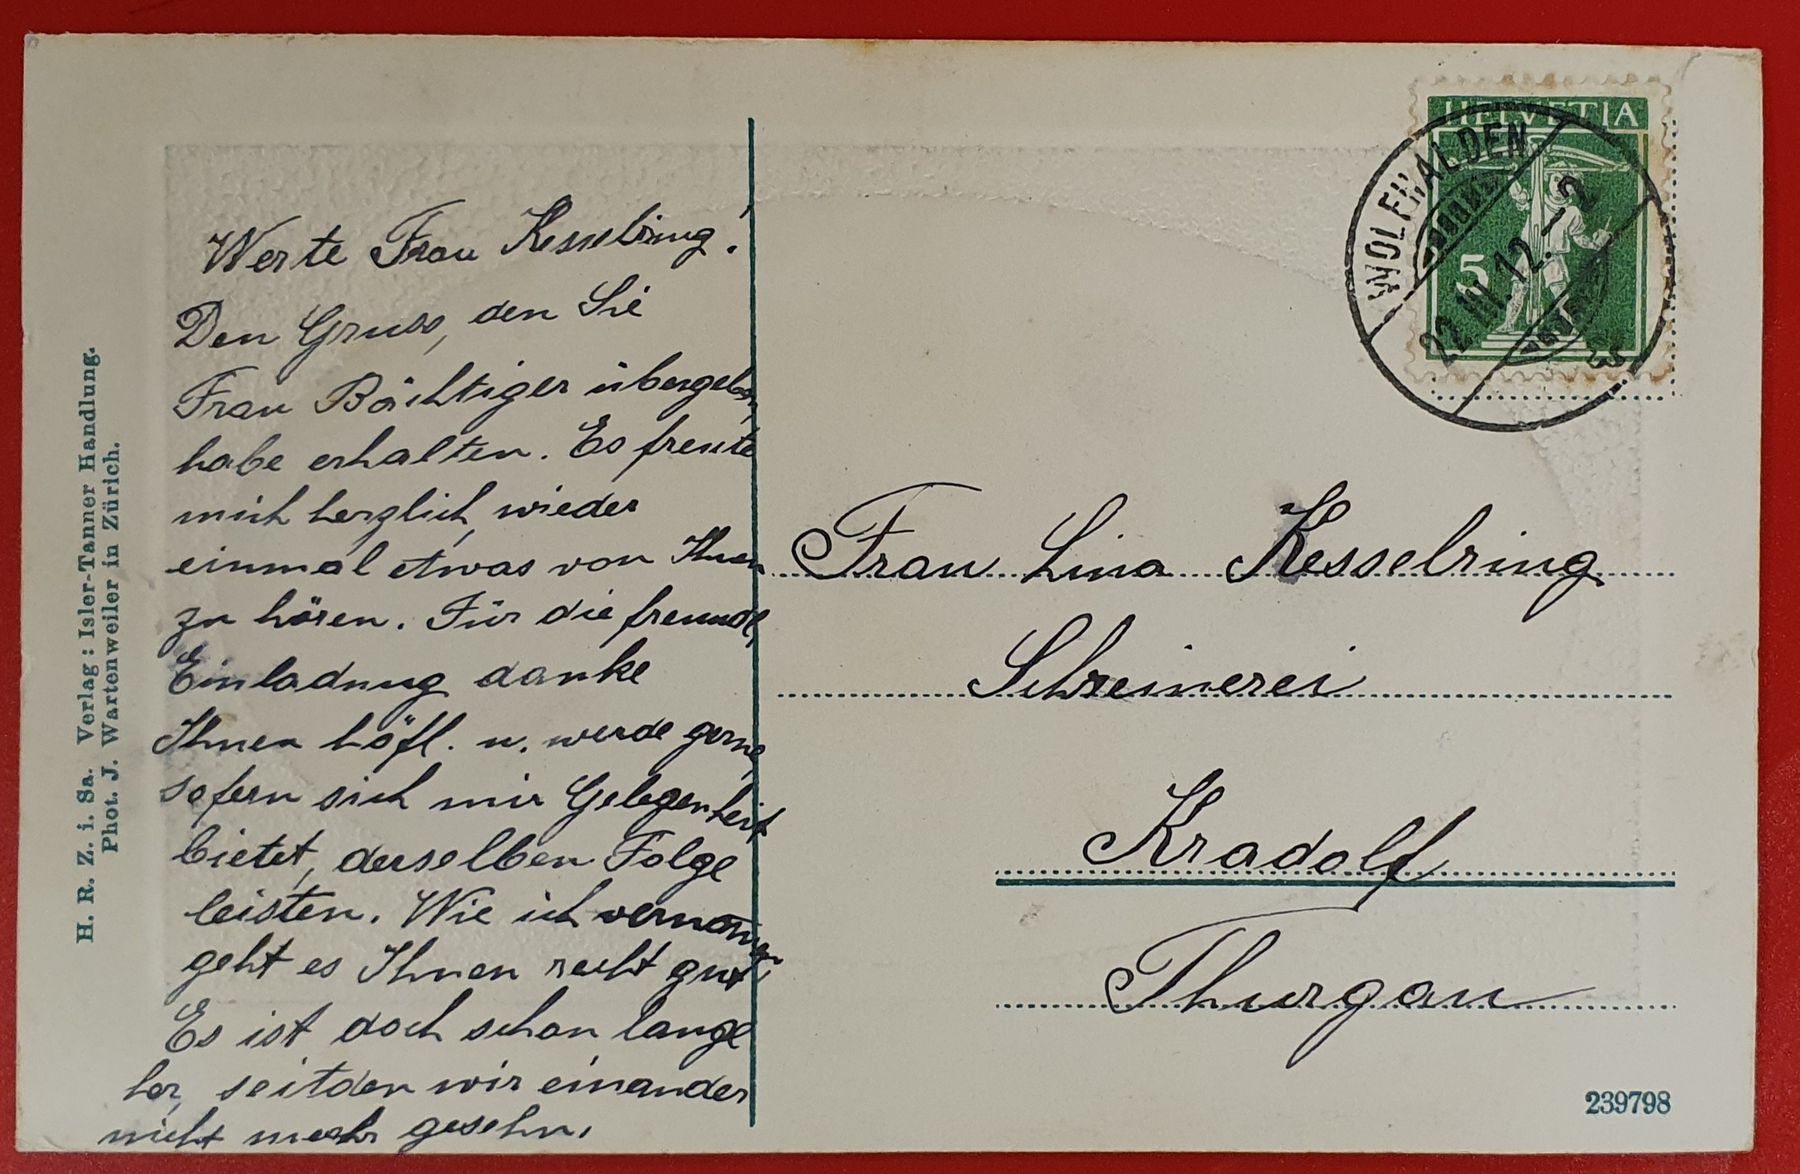 Werte Frau Kesselring!
Den Gruss, den Sie
Frau Bächtiger übergeben,
habe erhalten. Es freute
mich herzlich, wieder
einmal etwas von Ihnen
zu hören. Für die freundl.
Einladung danke
Ihnen höfl. u. werde gerne,
sofern sich mir Gelegenheit
bietet, derselben Folge
leisten. Wie ich vernommen
geht es Ihnen recht gut
Es ist doch schon lange
her, seitdem wir einander
nicht mehr gesehn.
H. R. Z. i. Sa. Verlag: Isler-Tanner Handlung.
Phot. J. Wartenweiler in Zürich.
HELVETIA
5
WOLFHALDEN
22.III.12.–2
Frau Lina Kesselring
Schreinerei
Kradolf
Thurgau
239798